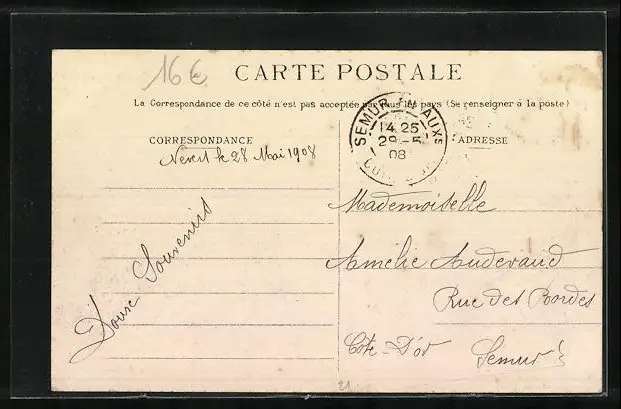 16 €
CARTE POSTALE
La Correspondance de ce côté n'est pas acceptée par tous les pays (Se renseigner à la poste)
CORRESPONDANCE
ADRESSE
le 28 Mai 1908
SEMUR EN AUXS
14 25
29 -5
08
Mademoiselle
Amélie Auderand
Rue des Bordes
Côte-D'or Semur
Doux Souvenirs
21